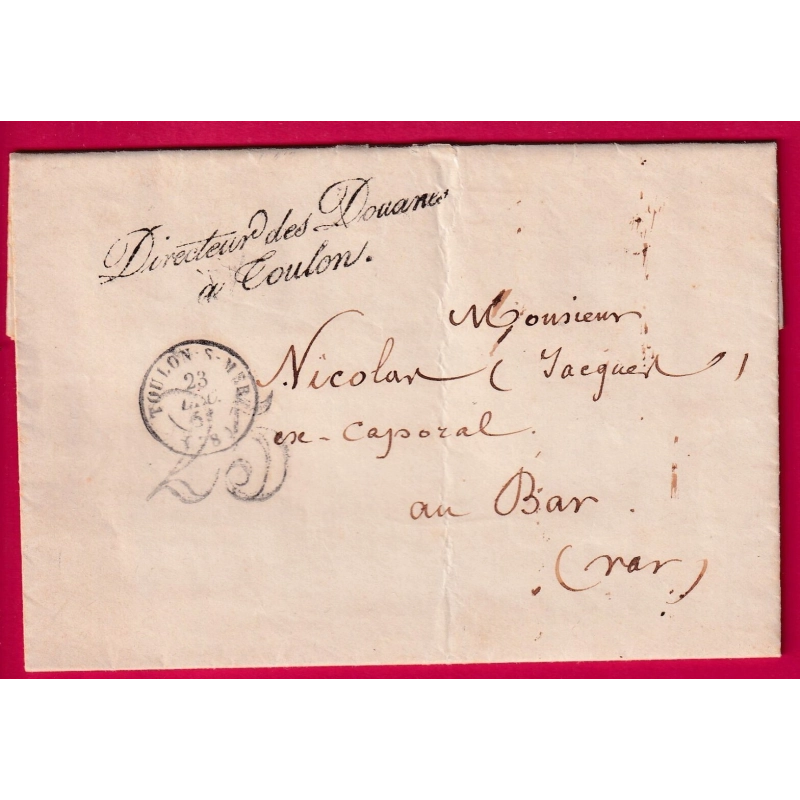 Directeur des Douanes
à Toulon.
Monsieur
Nicolas (Jacques)
ex-Caporal.
au Bar.
(var)
TOULON-S-MER
23
DEC.
54
(78)
25